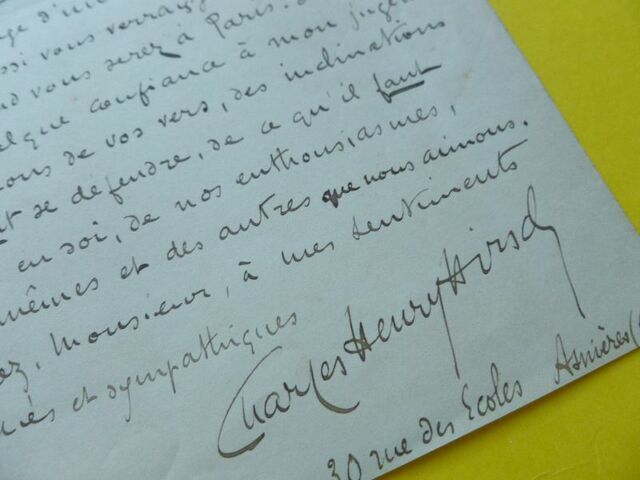 vous verrai
vous serez à Paris.
confiance à mon
de vos vers, des inclinations
se défendre, de ce qu'il faut
en soi, de nos enthousiasmes,
mêmes et des autres que nous aimons.
Monsieur, à mes sentiments
et sympathiques
Charles Henry Hirsch
30 rue des Ecoles Asnières (